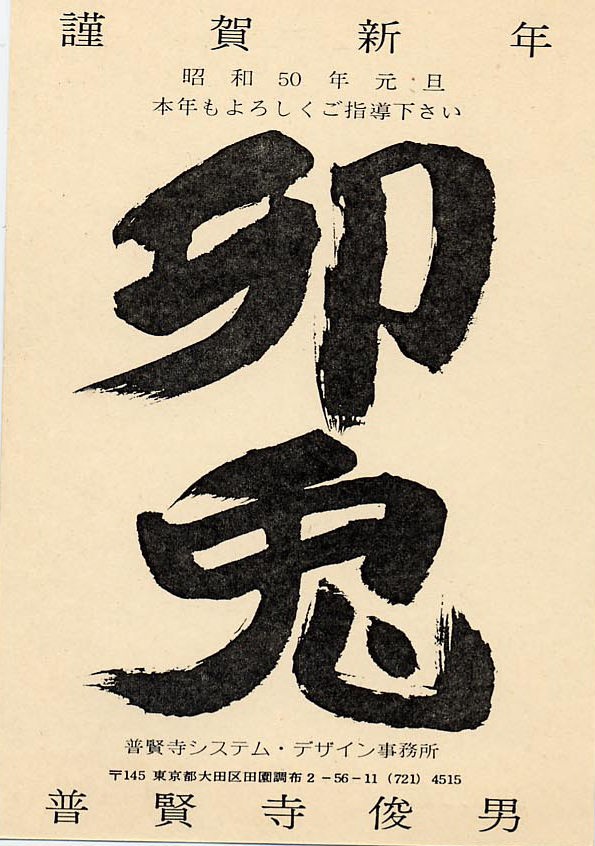 謹賀新年
昭和50年元旦
本年もよろしくご指導下さい
卯
兎
普賢寺システム・デザイン事務所
〒145 東京都大田区田園調布2-56-11 (721) 4515
普賢寺俊男